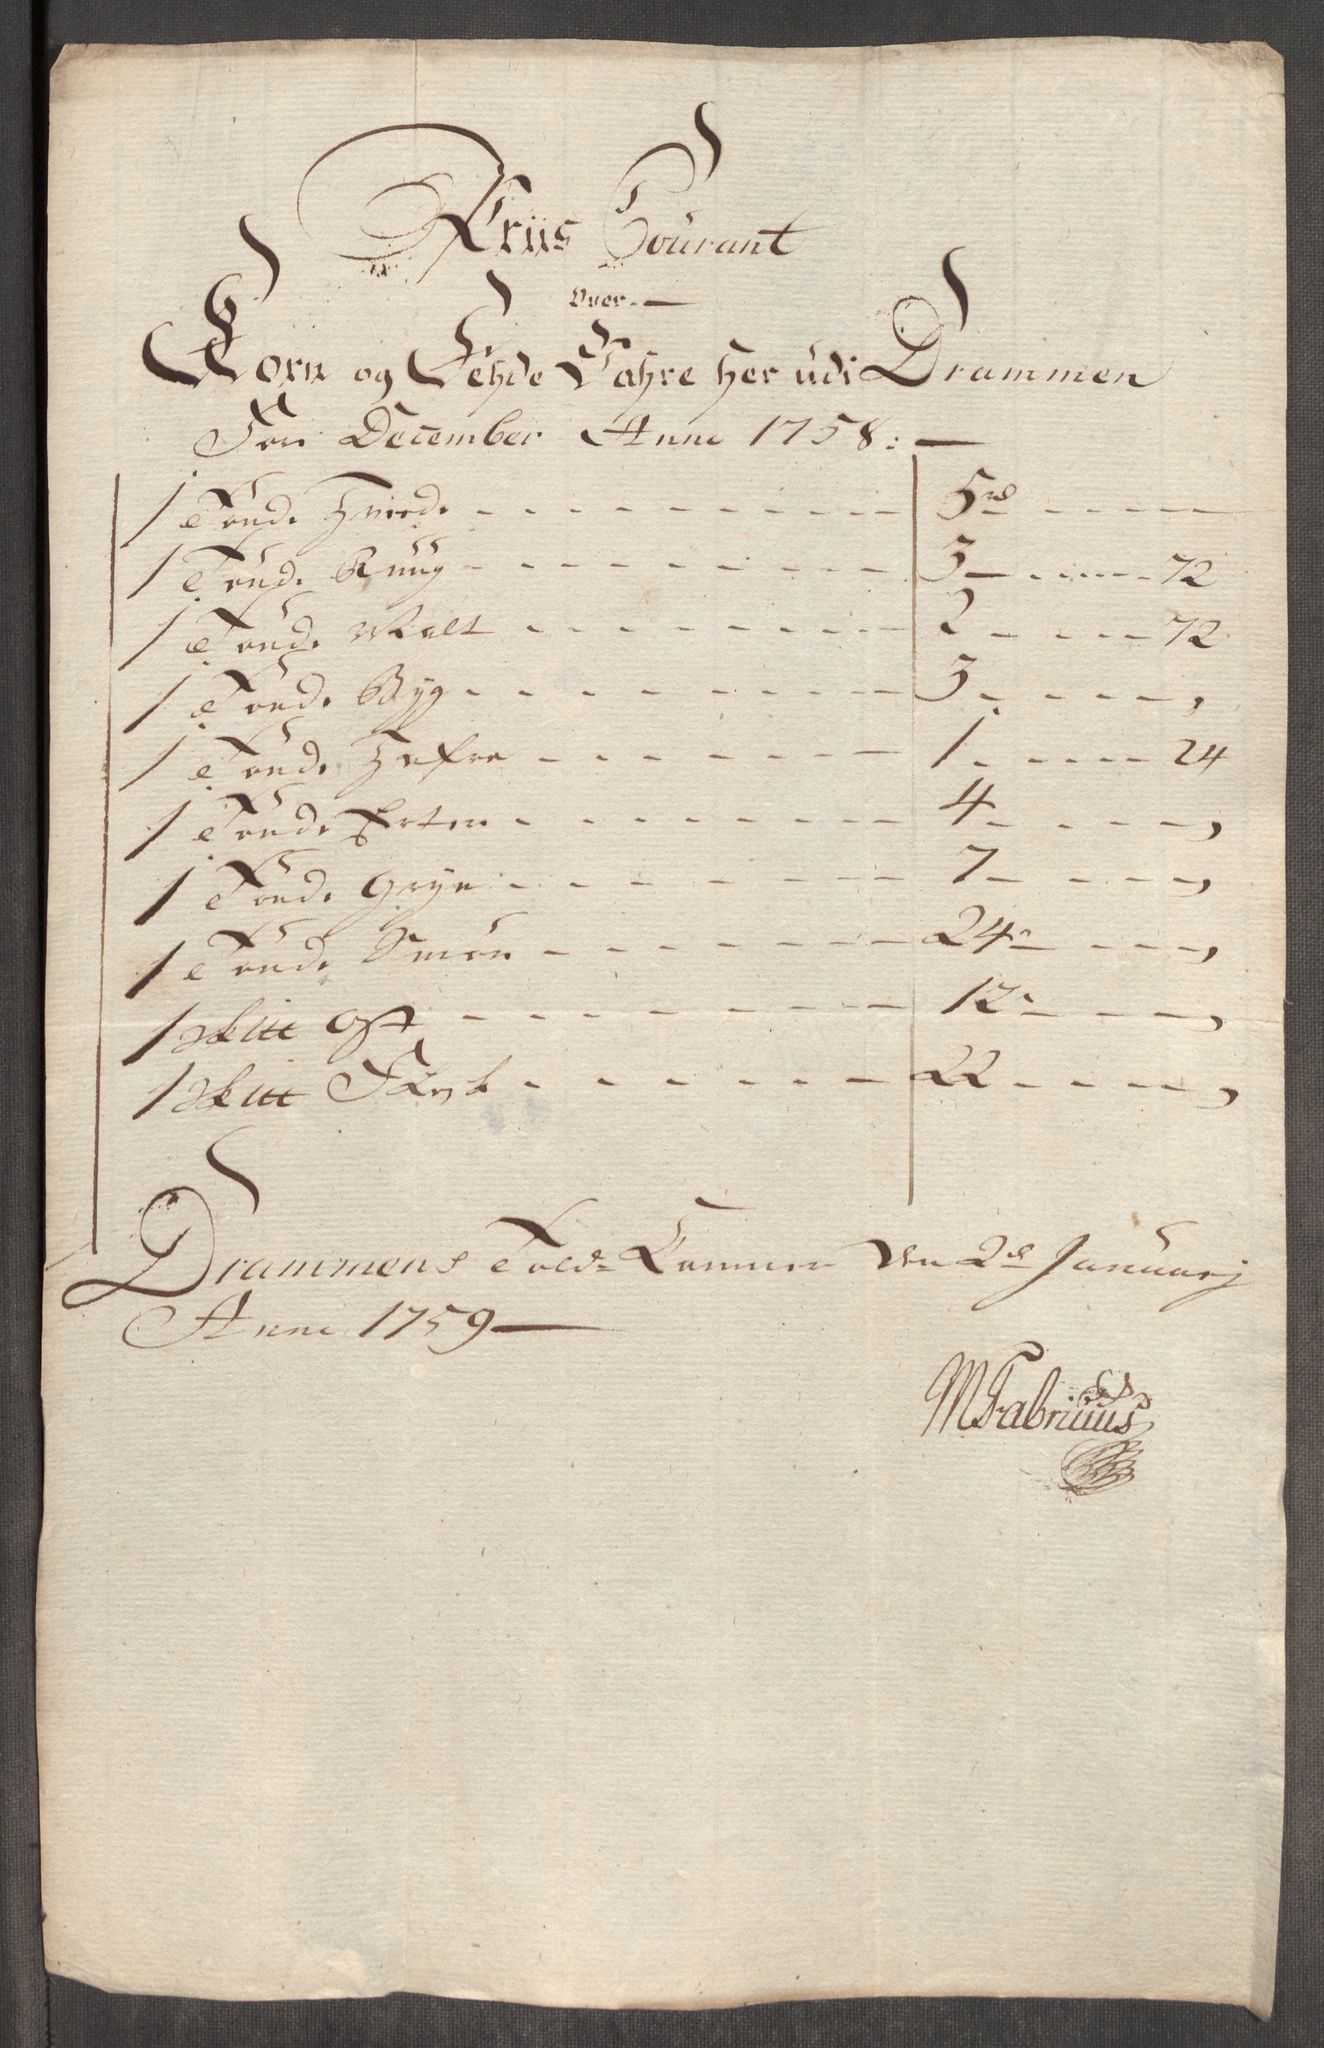 Priis Courant
Over
Korn og Fehde Vahre her udi Drammen
For December Anno 1758:
1 Tønde Hvede 5 rd
1 Tønde Ruug 3 72
1 Tønde Malt 2 72
1 Tønde Byg 3 ,
1 Tønde Hafre 1 24
1 Tønde Erter 4 ,
1 Tønde Gryn 7 ,
1 Tønde Smør 24 ,
1 skitt Ost 12 ,
1 skitt Flesk 22 ,
Drammens Told-Kammer den 2d January
Anno 1759
MFabritius